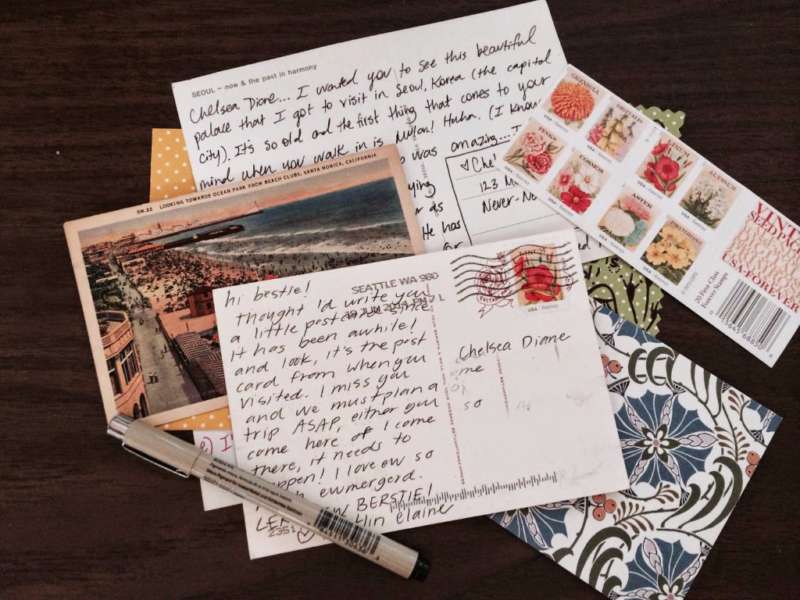 SEOUL - now & the past in harmony
Chelsea Diane... I wanted you to see this beautiful
palace that I got to visit in Seoul, Korea (the capital
city). It's so old and the first thing that comes to your
mind when you walk in is Mulan! Haha. (I know
was amazing...
ying
as
He has
for
♡ Chel
123 M
Never-Ne
SM-32 LOOKING TOWARDS OCEAN PARK FROM BEACH CLUBS, SANTA MONICA, CALIFORNIA
hi bestie!
thought I'd write you
a little postcard since
it has been awhile!
and look, it's the post
card from when you
visited. I miss you
and we must plan a
trip ASAP, either you
come here or I come
there, it needs to
happen! I love ew so
ewmergerd.
EW BERSTIE!
elaine
2351
SEATTLE WA 980
JUN 2014 PM 7 L
Chelsea Diane
me
so
USA FOREVER
20 First-Class
Forever Stamps